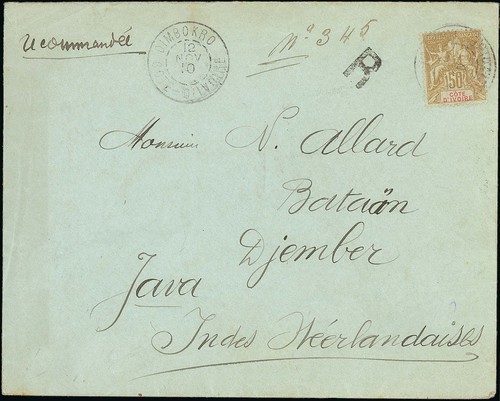 Recommandée
DIMBOKRO
12
NOV
10
CÔTE-D'IVOIRE
No 345
R
50
CÔTE
D'IVOIRE
Monsieur N. Allard
Bataän
Djember
Java
Indes Néerlandaises